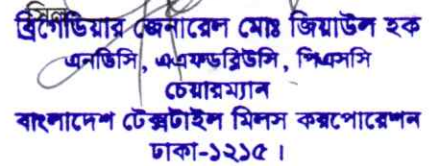 সিল
ব্রিগেডিয়ার জেনারেল মোঃ জিয়াউল হক
এনডিসি, এএফডব্লিউসি, পিএসসি
চেয়ারম্যান
বাংলাদেশ টেক্সটাইল মিলস করপোরেশন
ঢাকা-১২১৫ ।